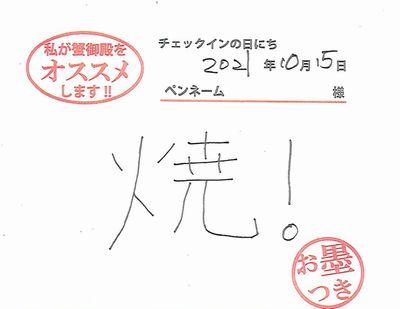 私が蟹御殿を
オススメ
します!!
チェックインの日にち
2021 年 10月 15日
ペンネーム 様
焼!
お墨
つき